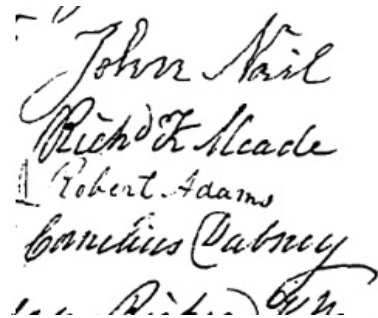 John Nail
Richd K Meade
Robert Adams
Cornelius Dabney